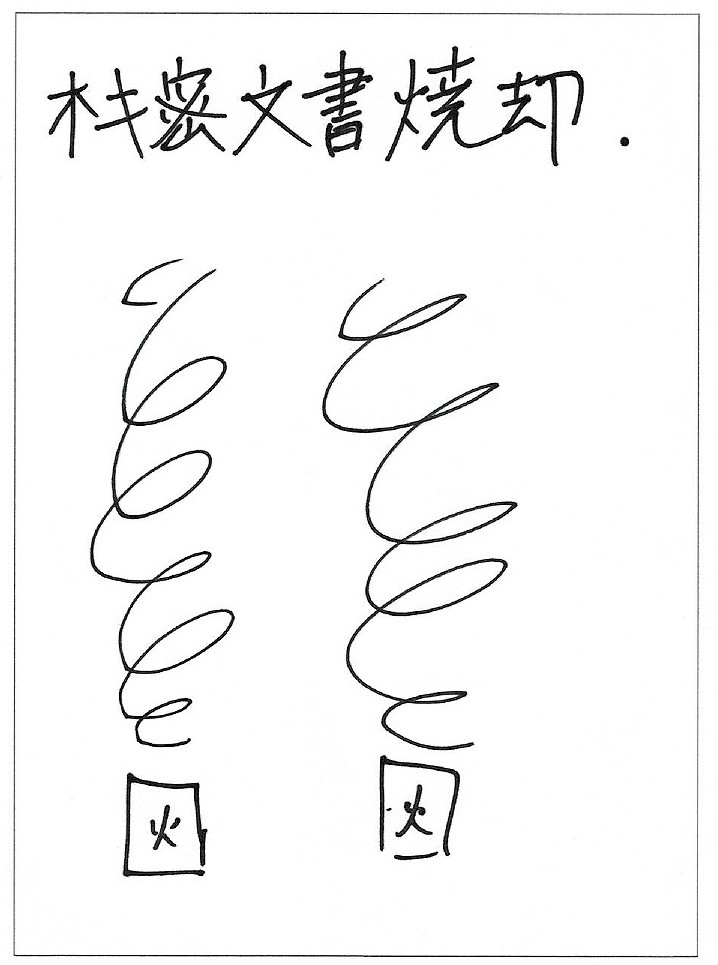 機密文書焼却.
火 火